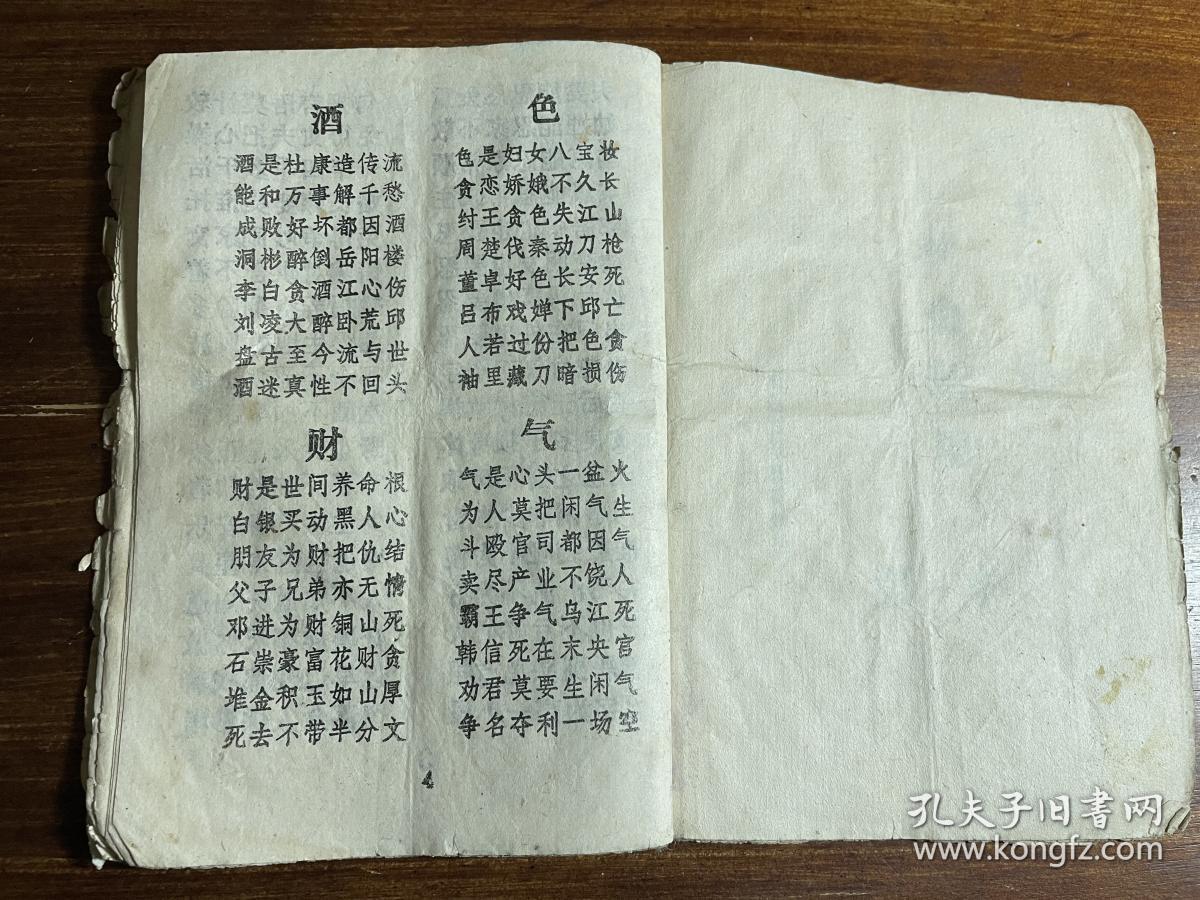 酒
酒是杜康造传流
能和万事解千愁
成败好坏都因酒
洞彬醉倒岳阳楼
李白贪酒江心伤
刘凌大醉卧荒邱
盘古至今流与世
酒迷真性不回头
色
色是妇女八宝妆
贪恋娇娥不久长
纣王贪色失江山
周楚伐秦动刀枪
董卓好色长安死
吕布戏婵下邱亡
人若过份把色贪
袖里藏刀暗损伤
财
财是世间养命根
白银买动黑人心
朋友为财把仇结
父子兄弟亦无情
邓进为财铜山死
石崇豪富花财贪
堆金积玉如山厚
死去不带半分文
气
气是心头一盆火
为人莫把闲气生
斗殴官司都因气
卖尽产业不饶人
霸王争气乌江死
韩信死在末央宫
劝君莫要生闲气
争名夺利一场空
4
孔夫子旧書网
www.kongfz.com